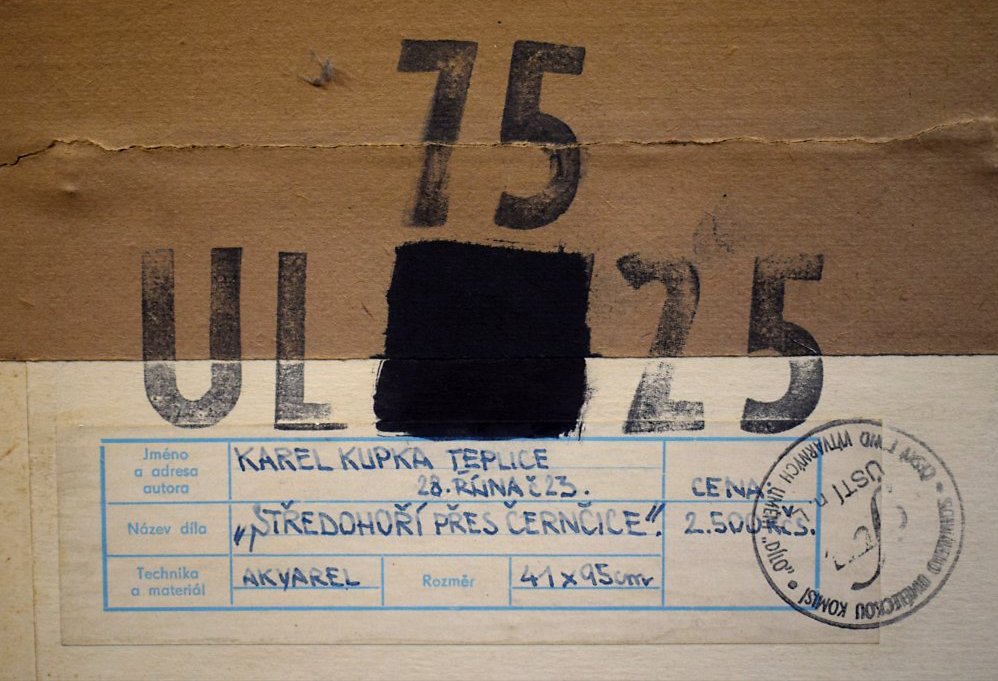 75
UL 25
Jméno
a adresa
autora
KAREL KUPKA TEPLICE
28. ŘÍJNA Č 23.
CENA:
Název díla
„STŘEDOHOŘÍ PŘES ČERNČICE".
2.500 KČS.
Technika
a materiál
AKVAREL
Rozměr
41 x 95 cm
SCHVÁLENO UMĚLECKOU KOMISÍ
VÝTVARNÝCH UMĚNÍ „DÍLO"
ÚSTÍ n. L.